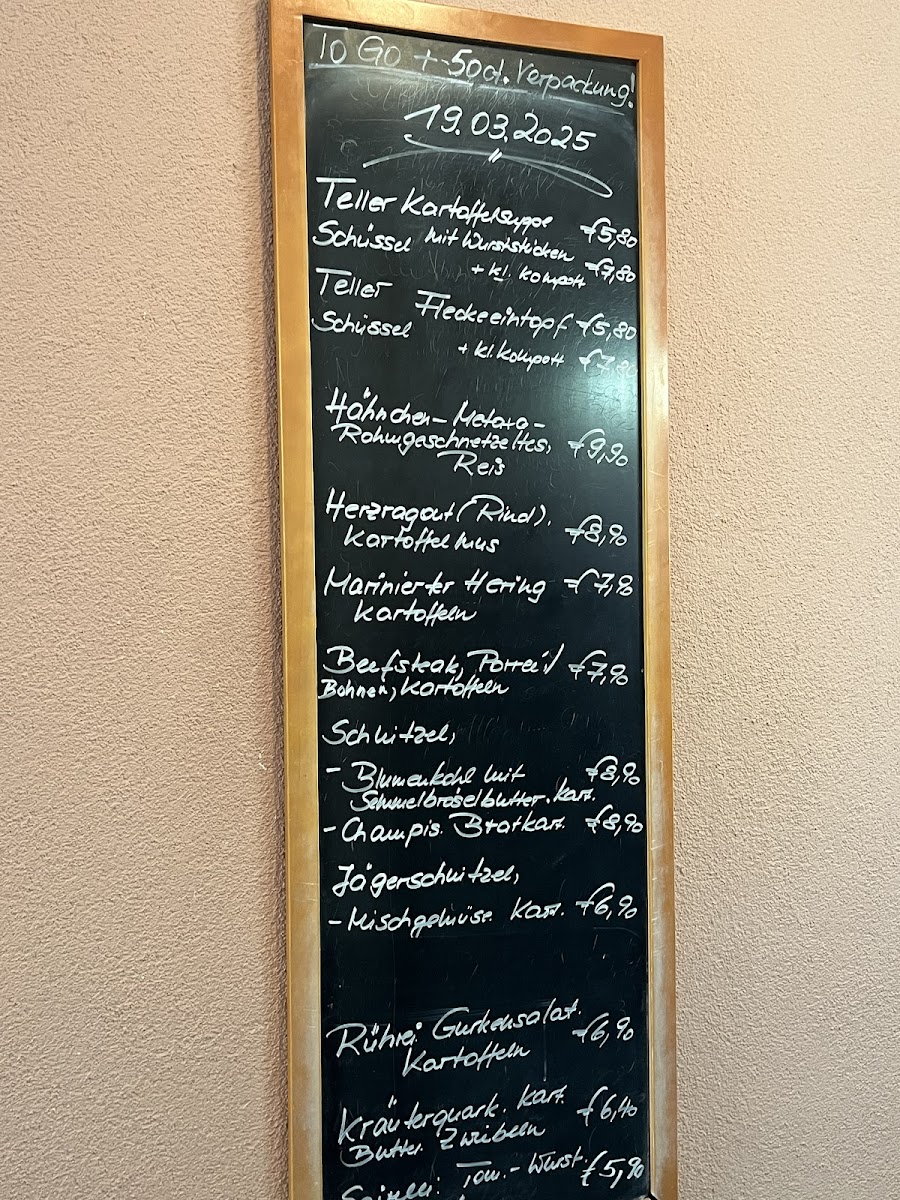 TO GO + 50ct. Verpackung!
19.03.2025
Teller Kartoffelsuppe €5,80
Schüssel mit Wurststücken €7,80
+ kl. Kompott
Teller Fleckeeintopf €5,80
Schüssel + kl. Kompott €7,80
Hähnchen-
Rahmgeschnetzeltes, €9,90
Reis
Herzragout (Rind). €8,90
Kartoffelmus
Marinierter Hering €7,90
Kartoffeln
Beefsteak, Porree/ €7,90
Bohnen, Kartoffeln
Schnitzel,
- Blumenkohl mit €8,90
Semmelbröselbutter. Kart.
- Champis. Bratkar. €8,90
Jägerschnitzel,
- Mischgemüse. Kart. €6,90
Rührei. Gurkensalat. €6,90
Kartoffeln
Kräuterquark. Kart. €6,40
Butter. Zwiebeln
Tom.-Wurst. €5,90